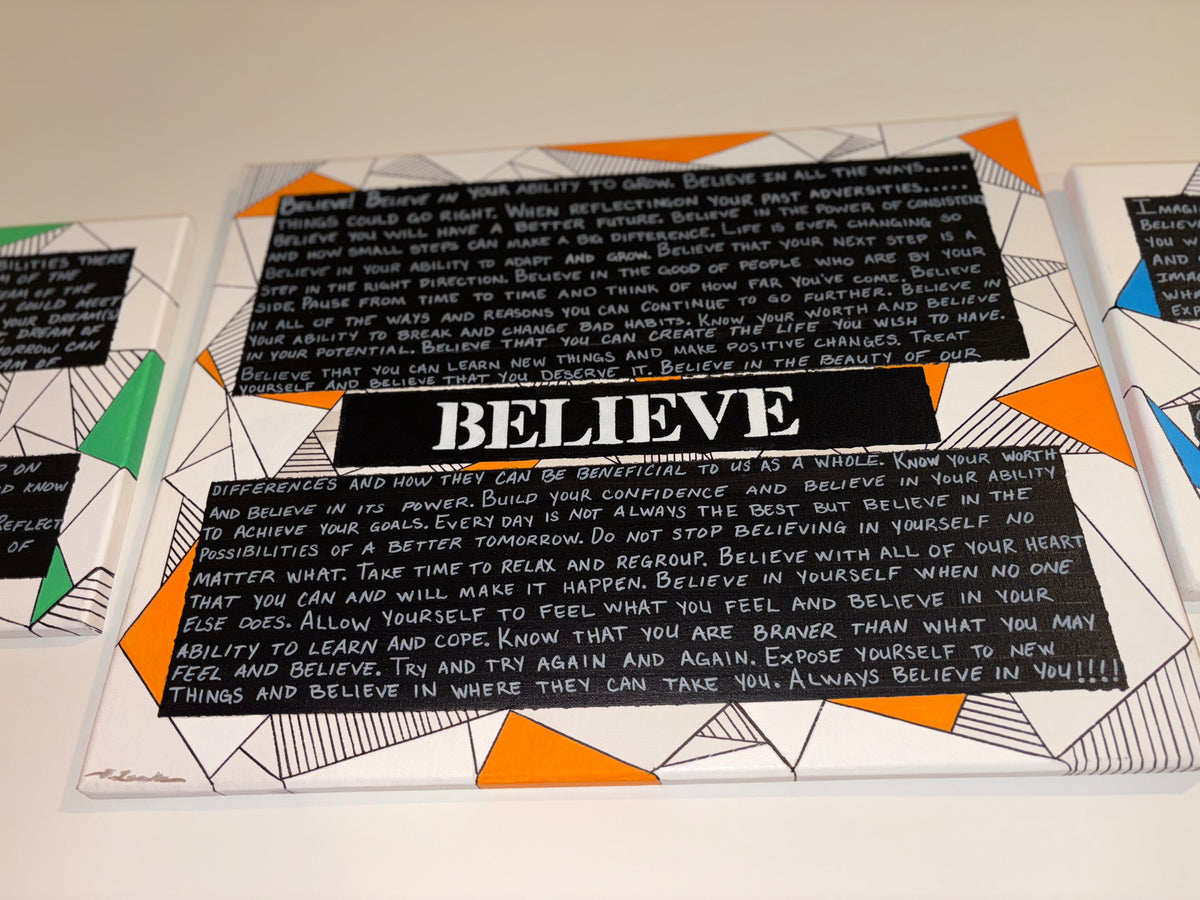 BILITIES THERE
OF THE
EAM OF THE
COULD MEET
YOUR DREAM(S)
DREAM OF
MORROW CAN
EAM OF
P ON
D KNOW
REFLECT
OF
BELIEVE! BELIEVE IN YOUR ABILITY TO GROW. BELIEVE IN ALL THE WAYS......
THINGS COULD GO RIGHT. WHEN REFLECTING ON YOUR PAST ADVERSITIES.....
BELIEVE YOU WILL HAVE A BETTER FUTURE. BELIEVE IN THE POWER OF CONSISTENC
AND HOW SMALL STEPS CAN MAKE A BIG DIFFERENCE. LIFE IS EVER CHANGING SO
BELIEVE IN YOUR ABILITY TO ADAPT AND GROW. BELIEVE THAT YOUR NEXT STEP IS A
STEP IN THE RIGHT DIRECTION. BELIEVE IN THE GOOD OF PEOPLE WHO ARE BY YOUR
SIDE. PAUSE FROM TIME TO TIME AND THINK OF HOW FAR YOU'VE COME. BELIEVE
IN ALL OF THE WAYS AND REASONS YOU CAN CONTINUE TO GO FURTHER. BELIEVE IN
YOUR ABILITY TO BREAK AND CHANGE BAD HABITS. KNOW YOUR WORTH AND BELIEVE
IN YOUR POTENTIAL. BELIEVE THAT YOU CAN CREATE THE LIFE YOU WISH TO HAVE.
BELIEVE THAT YOU CAN LEARN NEW THINGS AND MAKE POSITIVE CHANGES. TREAT
YOURSELF AND BELIEVE THAT YOU DESERVE IT. BELIEVE IN THE BEAUTY OF OUR
BELIEVE
DIFFERENCES AND HOW THEY CAN BE BENEFICIAL TO US AS A WHOLE. KNOW YOUR WORTH
AND BELIEVE IN ITS POWER. BUILD YOUR CONFIDENCE AND BELIEVE IN YOUR ABILITY
TO ACHIEVE YOUR GOALS. EVERY DAY IS NOT ALWAYS THE BEST BUT BELIEVE IN THE
POSSIBILITIES OF A BETTER TOMORROW. DO NOT STOP BELIEVING IN YOURSELF NO
MATTER WHAT. TAKE TIME TO RELAX AND REGROUP. BELIEVE WITH ALL OF YOUR HEART
THAT YOU CAN AND WILL MAKE IT HAPPEN. BELIEVE IN YOURSELF WHEN NO ONE
ELSE DOES. ALLOW YOURSELF TO FEEL WHAT YOU FEEL AND BELIEVE IN YOUR
ABILITY TO LEARN AND COPE. KNOW THAT YOU ARE BRAVER THAN WHAT YOU MAY
FEEL AND BELIEVE. TRY AND TRY AGAIN AND AGAIN. EXPOSE YOURSELF TO NEW
THINGS AND BELIEVE IN WHERE THEY CAN TAKE YOU. ALWAYS BELIEVE IN YOU!!!!
IMAGI
BELIEV
YOU W
AND
IMA
WH
EXP